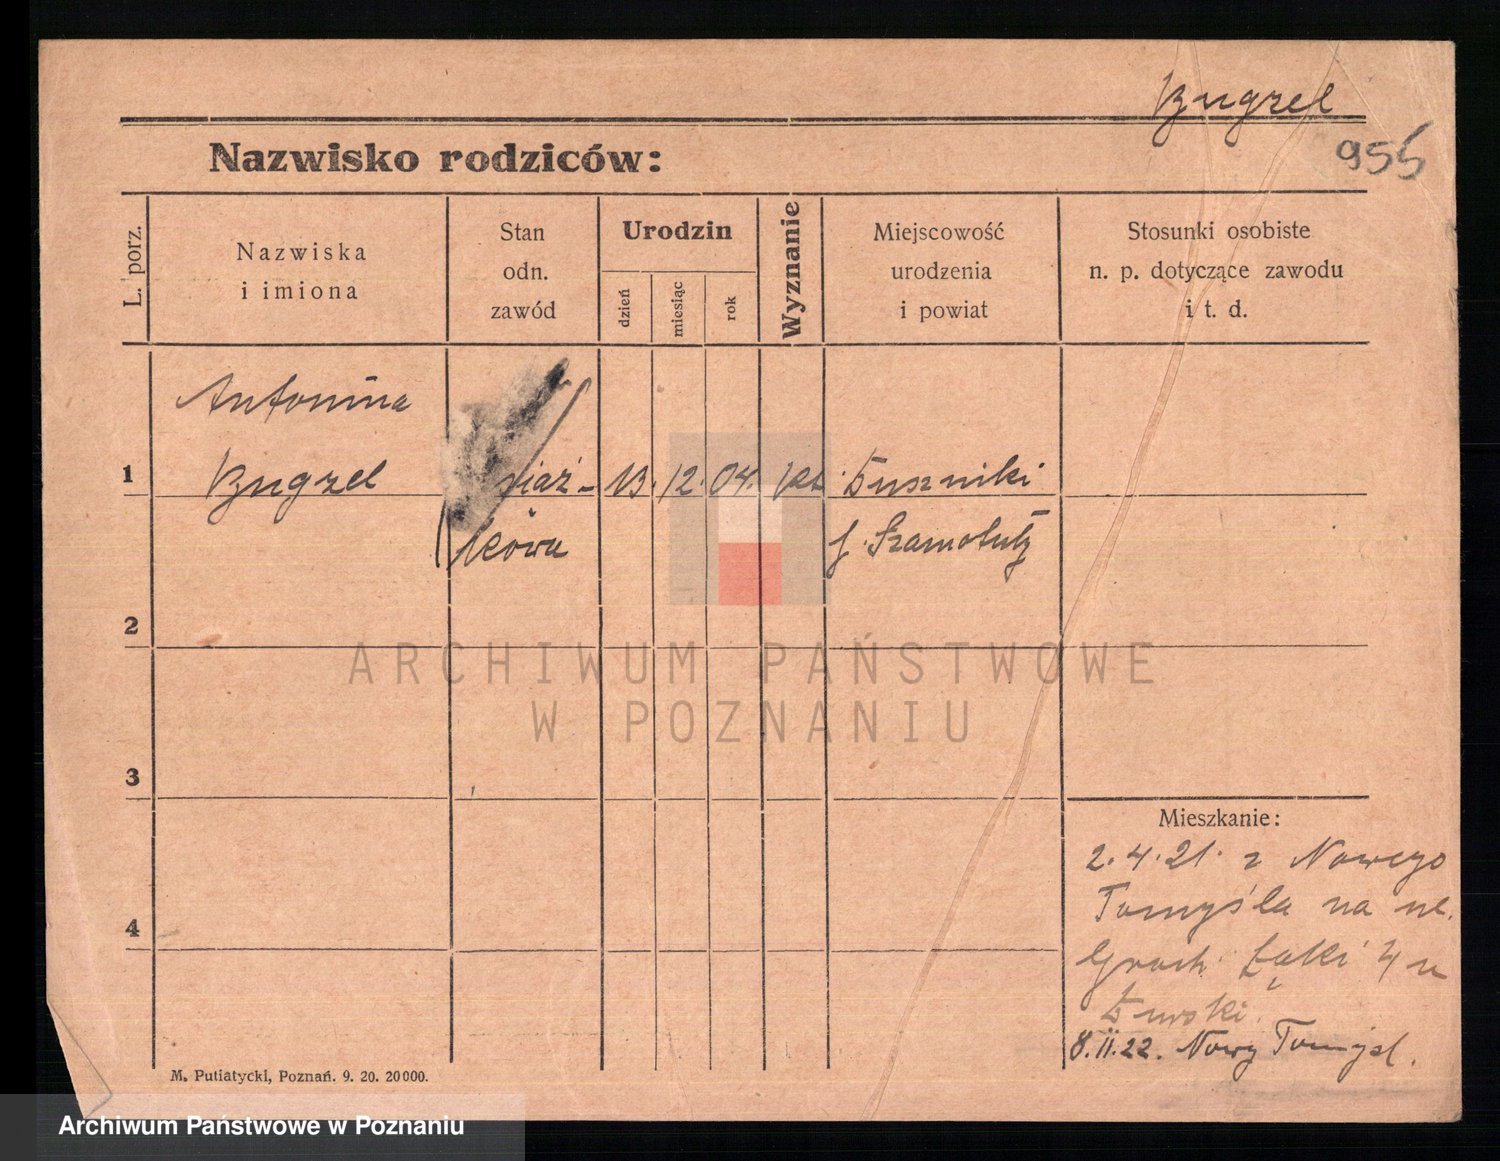 Bugzel
955
Nazwisko rodziców:
L. porz.
Nazwiska
i imiona
Stan
odn.
zawód
Urodzin
dzień
miesiąc
rok
Wyznanie
Miejscowość
urodzenia
i powiat
Stosunki osobiste
n. p. dotyczące zawodu
i t. d.
Antonina
1
Bugzel
13. 12. 04. kt. Duszniki
kówna
Szamotuły
2
ARCHIWUM PAŃSTWOWE
W POZNANIU
3
Mieszkanie:
2.4.21. z Nowego
Tomyśla na ul.
4
Groch. Łąki 4 u
8.II.22. Nowy Tomyśl.
M. Putiatycki, Poznań. 9. 20. 20000.
Archiwum Państwowe w Poznaniu